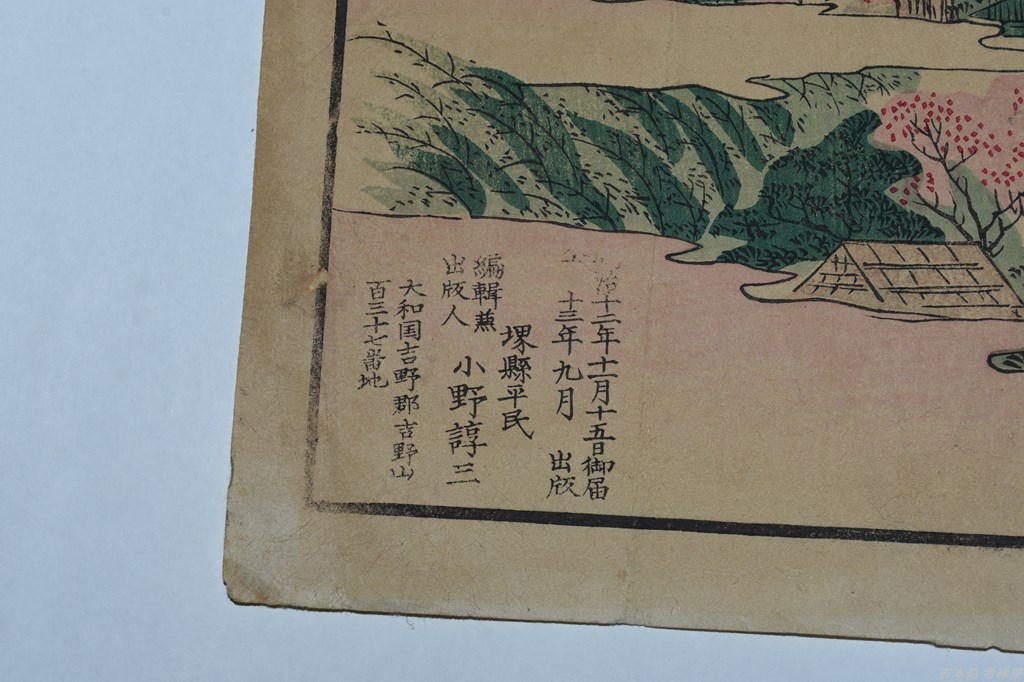 治十二年十一月十五日御届
十三年九月 出版
堺縣平民
編輯兼
出版人 小野諄三
大和国吉野郡吉野山
百三十七番地